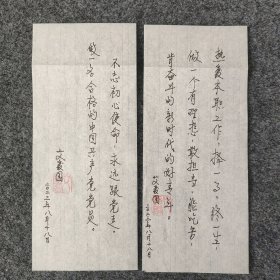 热爱本职工作，择一事，终一生，
做一个有理想，敢担当，能吃苦，
肯奋斗的新时代的好青年。
艾爱国
年八月十八日
不忘初心使命，永远跟党走，
做一名合格的中国共产党党员。
艾爱国
年八月十八日